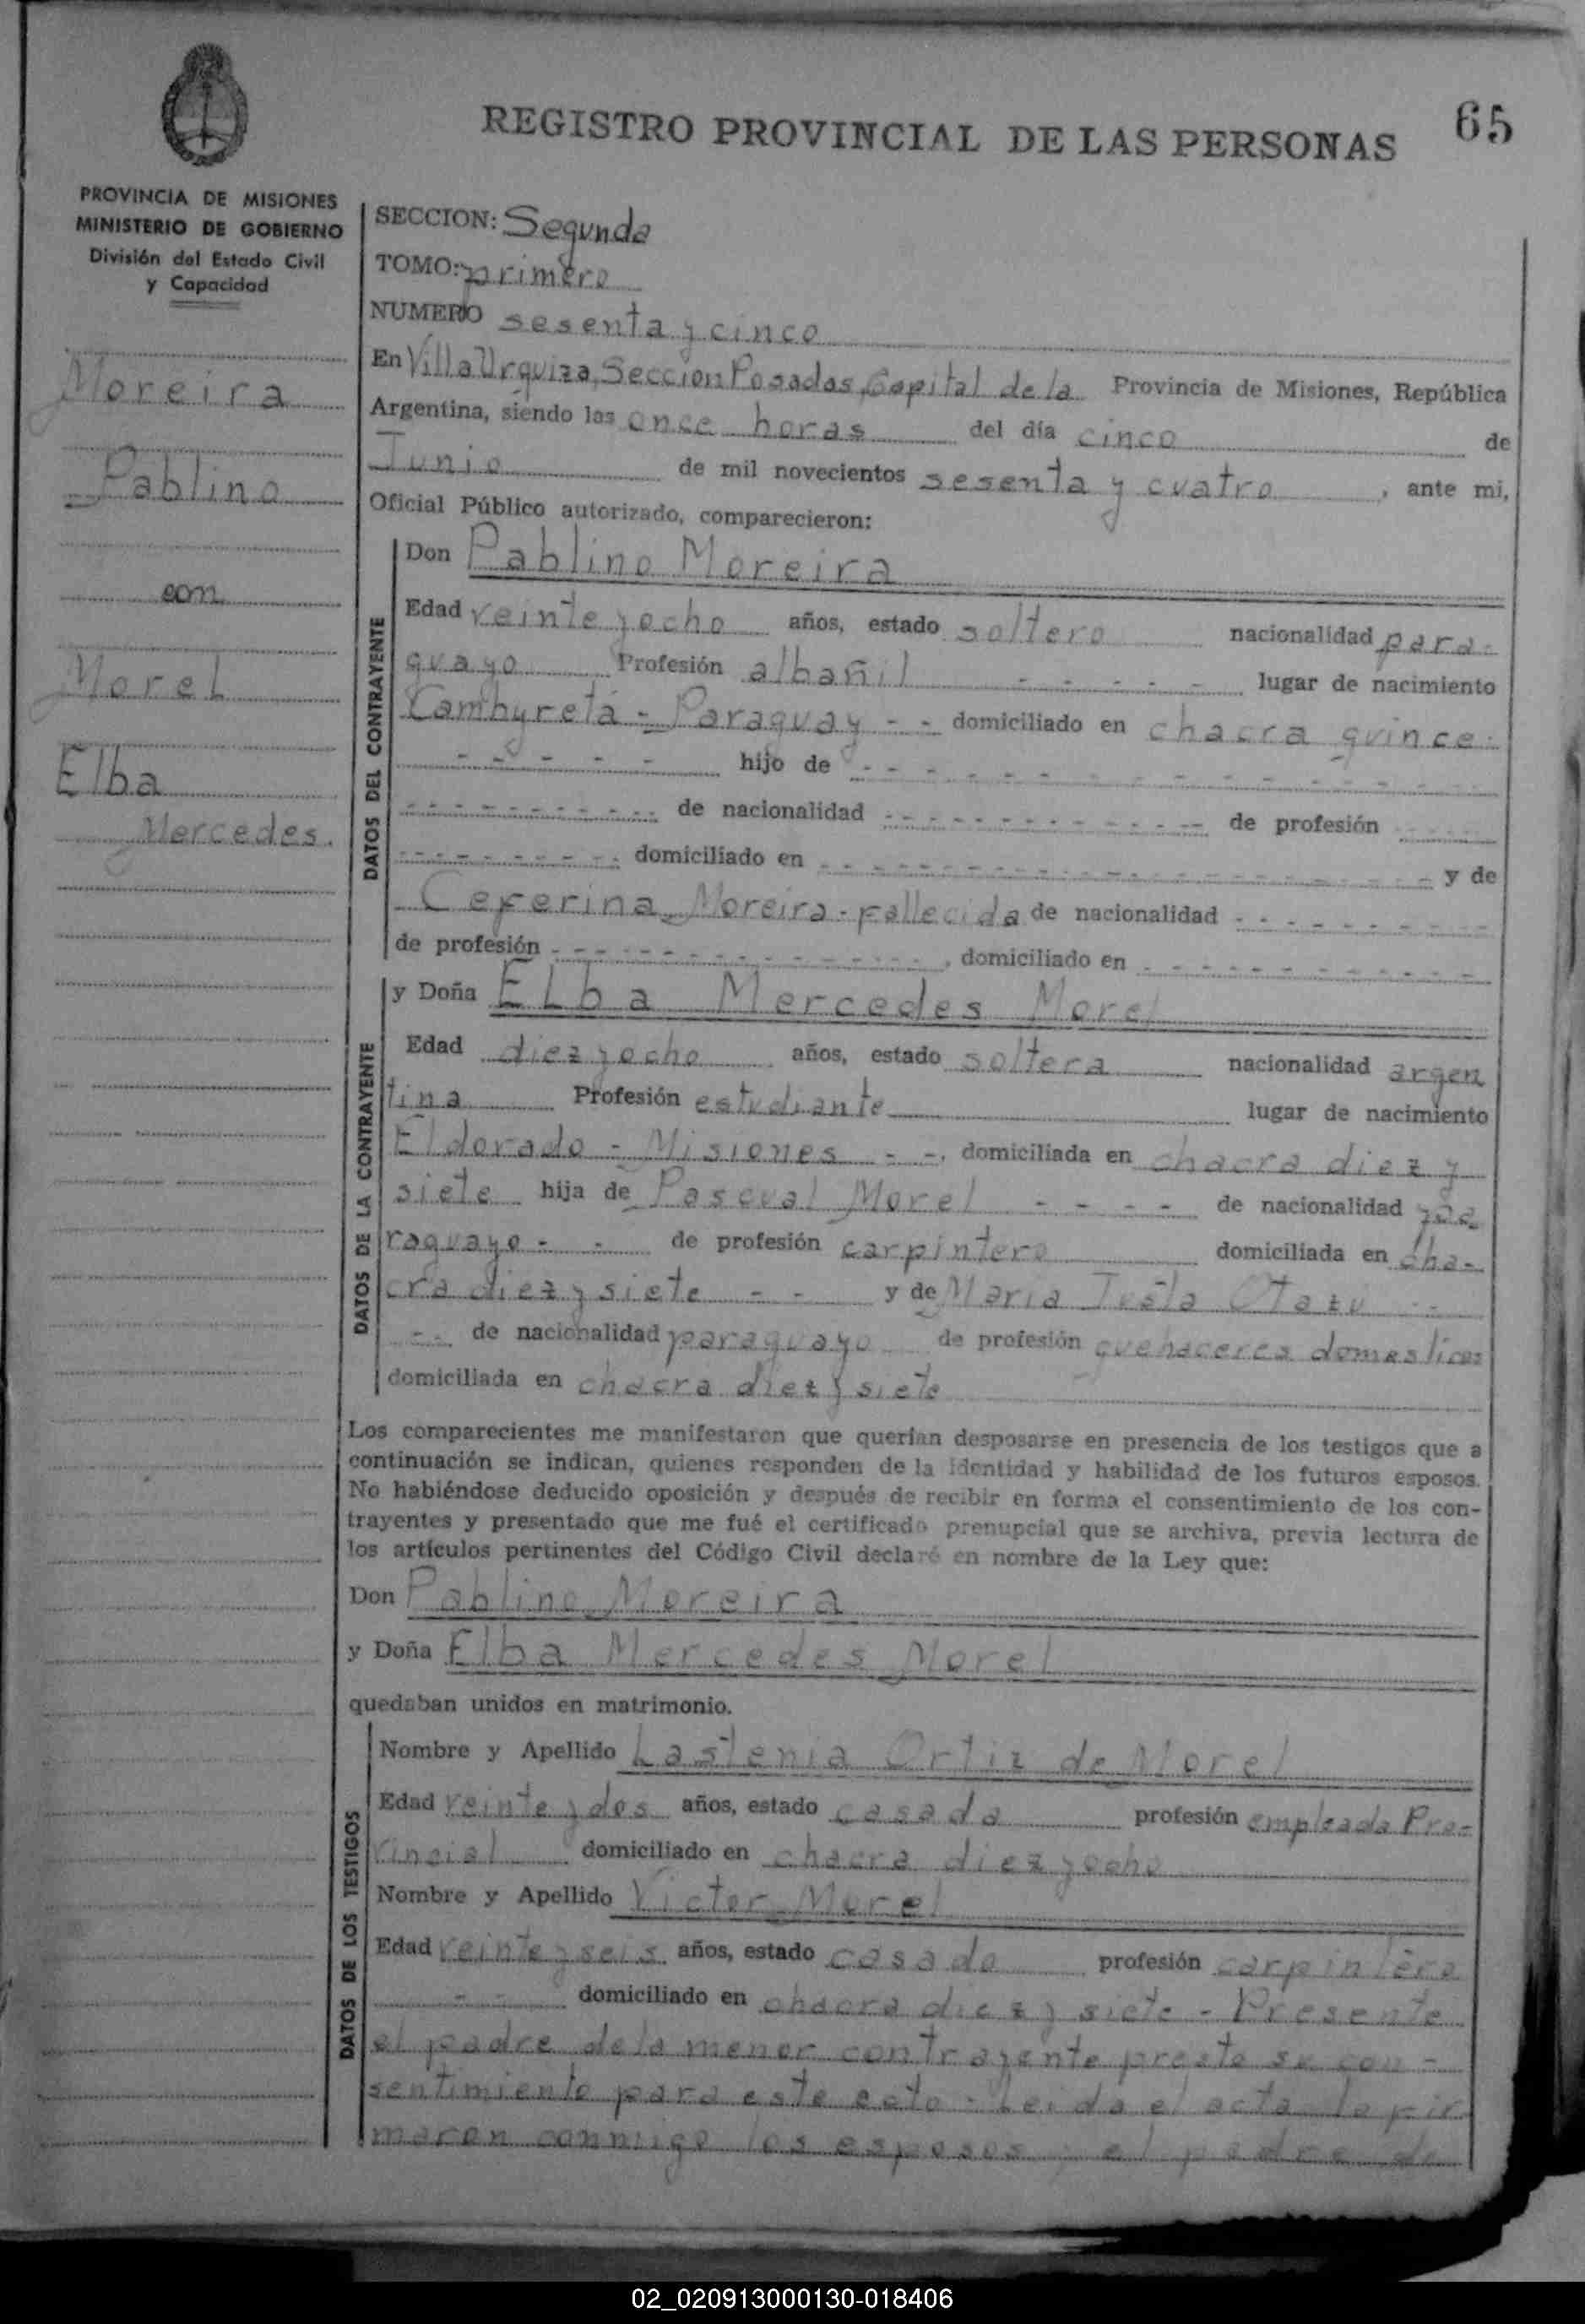 REGISTRO PROVINCIAL DE LAS PERSONAS
65
PROVINCIA DE MISIONES
MINISTERIO DE GOBIERNO
División del Estado Civil
y Capacidad
Moreira
Pablino
con
Morel
Elba
Mercedes.
SECCION: Segunda
TOMO: primero
NUMERO sesenta y cinco
En Villa Urquiza, Seccion Posadas, Capital de la Provincia de Misiones, República
Argentina, siendo las once horas del día cinco de
Junio de mil novecientos sesenta y cuatro, ante mi,
Oficial Público autorizado, comparecieron:
DATOS DEL CONTRAYENTE
Don Pablino Moreira
Edad veinte y ocho años, estado soltero nacionalidad para-
guayo Profesión albañil - - - - - lugar de nacimiento
Cambyretá - Paraguay - - domiciliado en chacra quince -
- - - - - hijo de - - - - - - - - - - - - - - -
- - - - - - - - - - de nacionalidad - - - - - - - - - - - - de profesión
- - - - - - - - - domiciliado en - - - - - - - - - - - - - - - - y de
Ceferina Moreira - fallecida de nacionalidad - - - - - - - -
de profesión - - - - - - - - - - - -, domiciliado en - - - - - - - - - - -
DATOS DE LA CONTRAYENTE
y Doña Elba Mercedes Morel
Edad diez y ocho años, estado soltera nacionalidad argen
tina Profesión estudiante lugar de nacimiento
Eldorado - Misiones - -, domiciliada en chacra diez y
siete hija de Pascual Morel - - - - de nacionalidad pa
raguayo - - de profesión carpintero domiciliada en cha-
cra diez y siete - - y de Maria Justa Otazu - -
- - de nacionalidad paraguayo de profesión quehaceres domesticos
domiciliada en chacra diez y siete
Los comparecientes me manifestaron que querían desposarse en presencia de los testigos que a
continuación se indican, quienes responden de la identidad y habilidad de los futuros esposos.
No habiéndose deducido oposición y después de recibir en forma el consentimiento de los con-
trayentes y presentado que me fué el certificado prenupcial que se archiva, previa lectura de
los artículos pertinentes del Código Civil declaré en nombre de la Ley que:
Don Pablino Moreira
y Doña Elba Mercedes Morel
quedaban unidos en matrimonio.
DATOS DE LOS TESTIGOS
Nombre y Apellido Lastenia Ortiz de Morel
Edad veinte y dos años, estado casada profesión empleada Pro-
vincial domiciliado en chacra diez y ocho
Nombre y Apellido Victor Morel
Edad veinte y seis años, estado casado profesión carpintero
- - domiciliado en chacra diez y siete - Presente
el padre de la menor contrayente presta su con-
sentimiento para este acto - Leida el acta la fir
maron conmigo los esposos el padre de
02_020913000130-018406